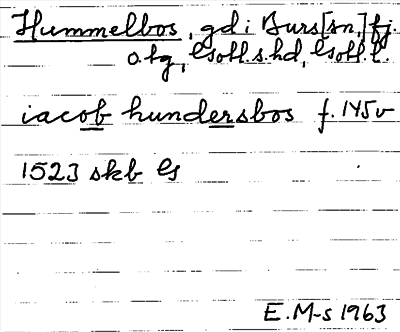 Hummelbos, gd i Burs[sn,] fj.
o. tg, Gotl. s. hd, Gotl. l.
iacob hundersbos f. 145v
1523 skb Gs
E.M-s 1963